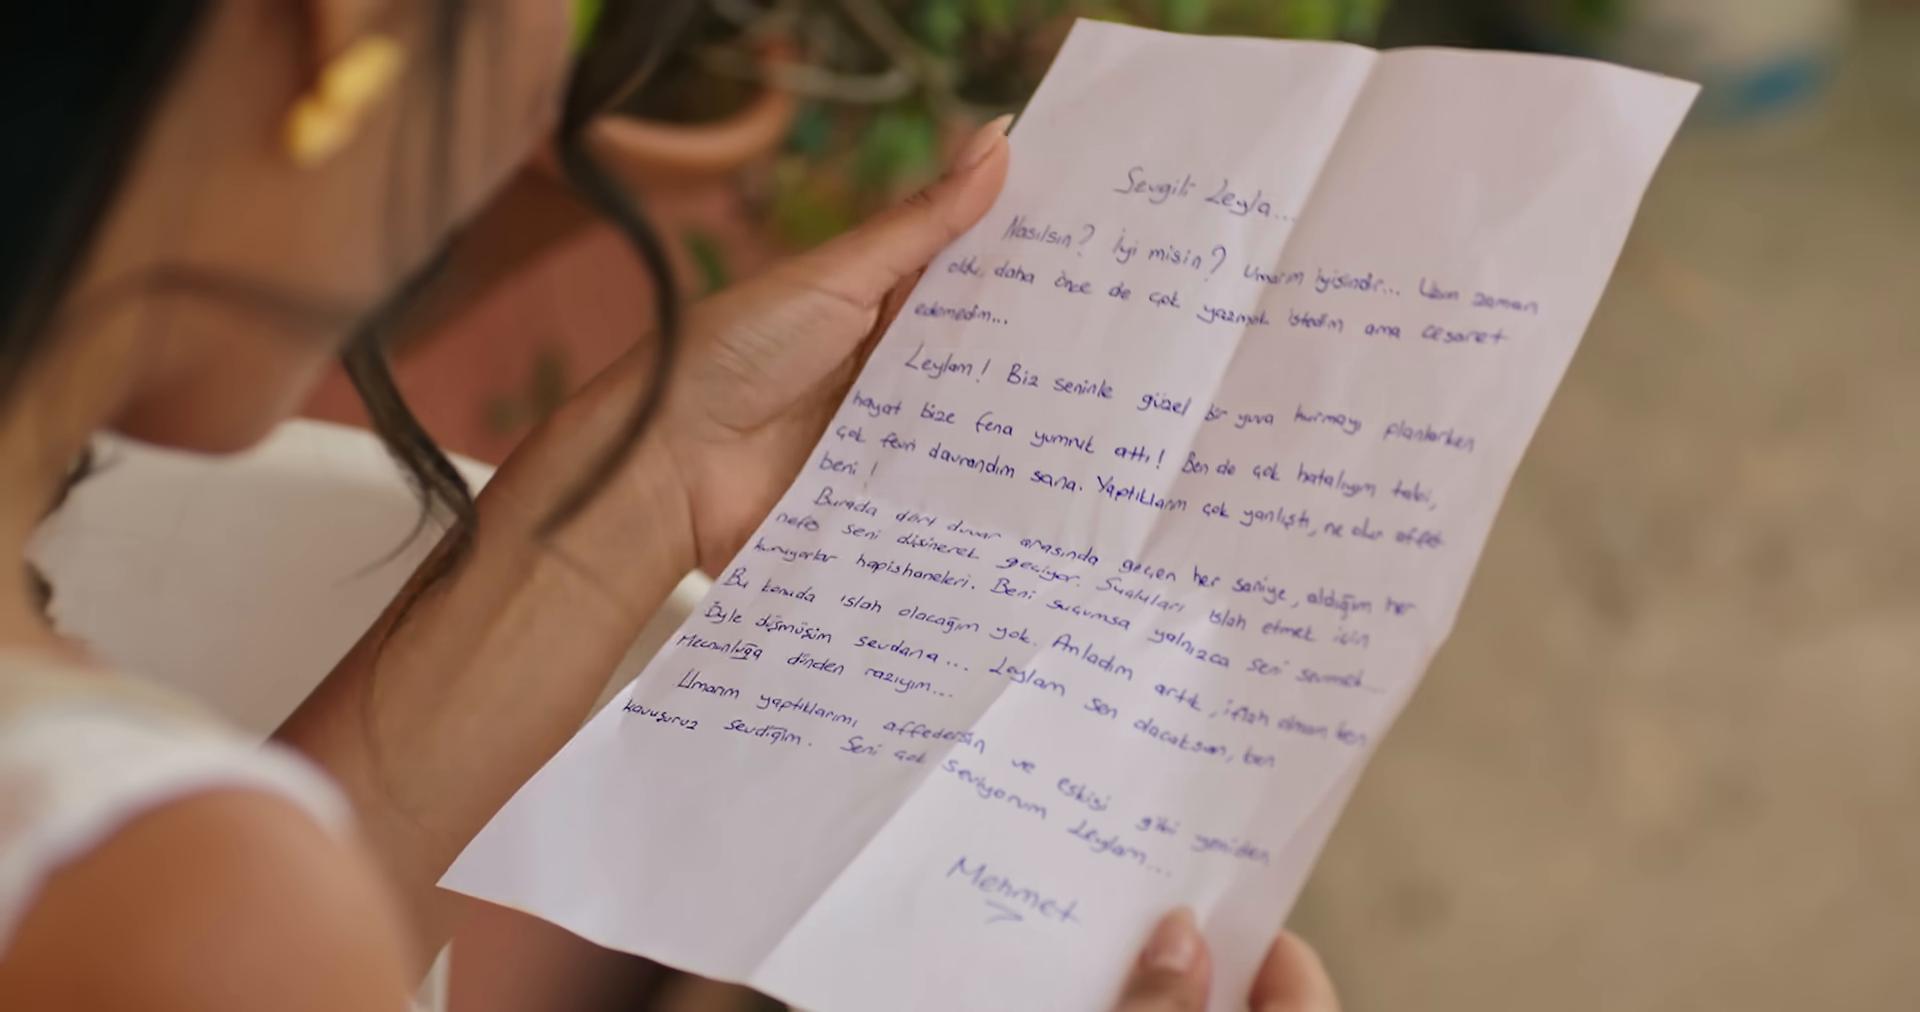 Sevgili Leyla...
Nasılsın? İyi misin? Umarım iyisindir... Uzun zaman
oldu, daha önce de çok yazmak istedim ama cesaret
edemedim...
Leylam! Biz seninle güzel bir yuva kurmayı planlarken
hayat bize fena yumruk attı! Ben de çok hatalıyım tabi,
çok fevri davrandım sana. Yaptıklarım çok yanlıştı, ne olur affet
beni!
Burada dört duvar arasında geçen her saniye, aldığım her
nefes seni düşünerek geçiyor. Suçluları ıslah etmek için
kuruyorlar hapishaneleri. Beni suçumsa yalnızca seni sevmek...
Bu konuda ıslah olacağım yok. Anladım artık, iflah olmam ben
Öyle düşmüşüm sevdana... Leylam sen olacaksan, ben
Mecnunluğa dünden razıyım...
Umarım yaptıklarımı affedersin ve eskisi gibi yeniden
kavuşuruz sevdiğim. Seni çok seviyorum Leylam...
Mehmet